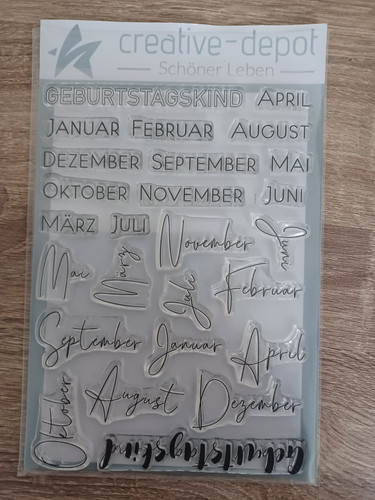 creative-depot
Schöner Leben
GEBURTSTAGSKIND APRIL
JANUAR FEBRUAR AUGUST
DEZEMBER SEPTEMBER MAI
OKTOBER NOVEMBER JUNI
MÄRZ JULI November Juni
Mai März Juli Februar
September Januar April
Oktober August Dezember
Geburtstagskind